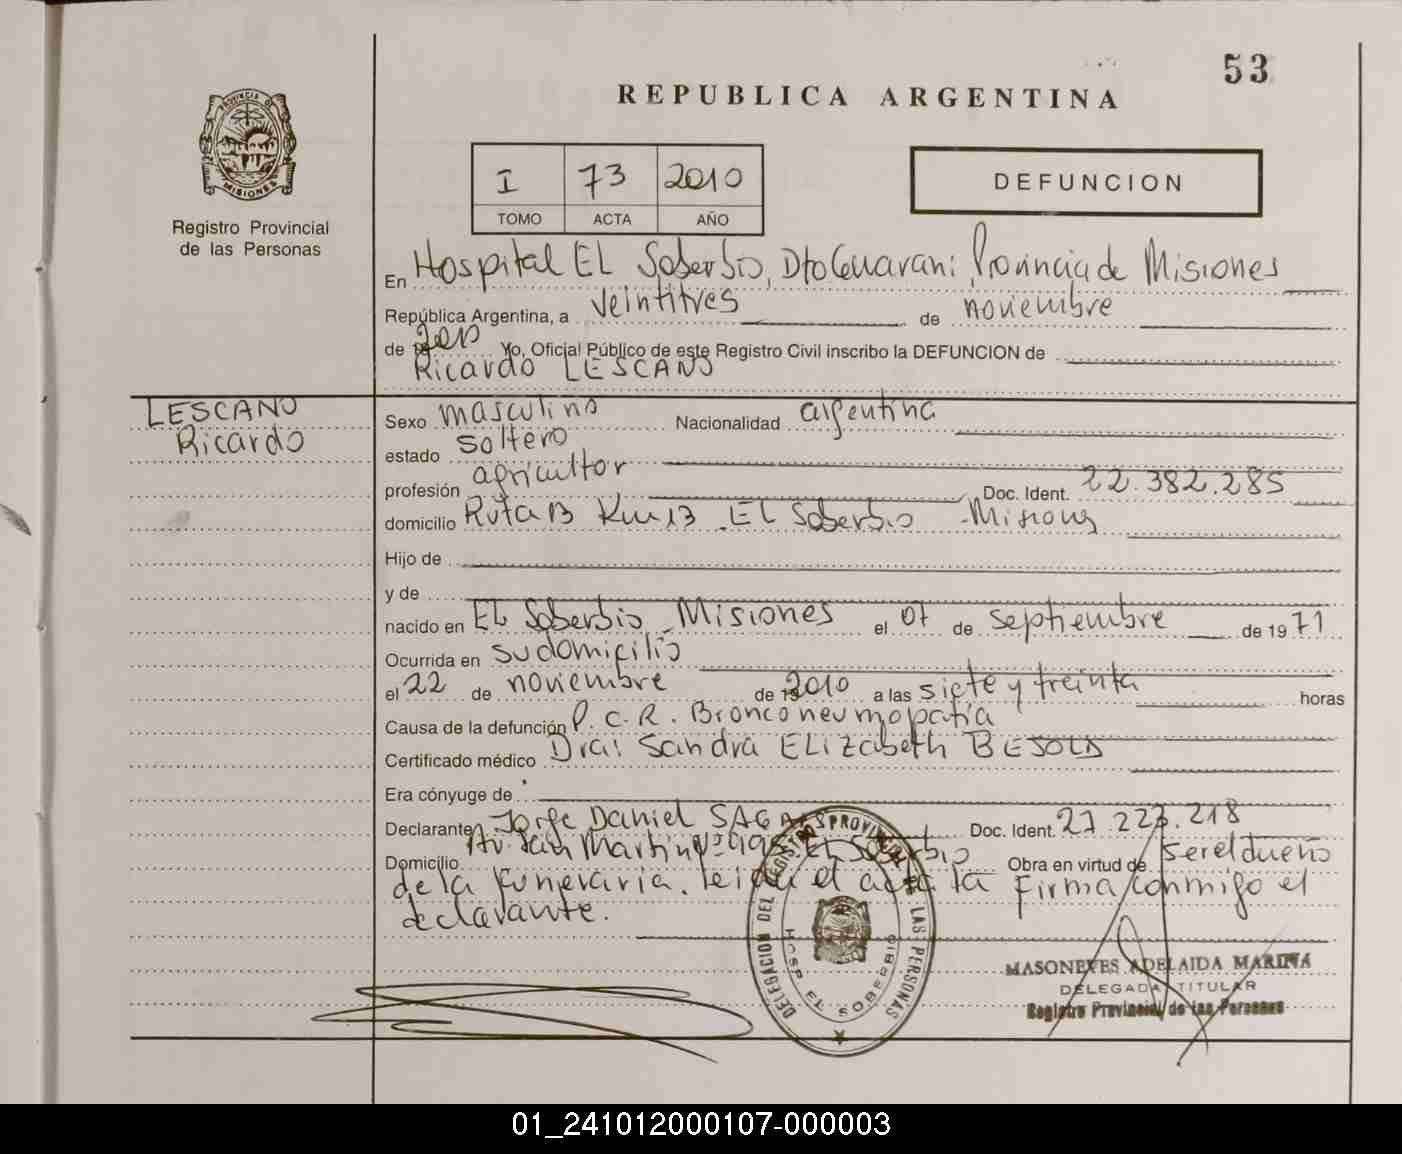 53
REPUBLICA ARGENTINA
PROVINCIA DE
MISIONES
Registro Provincial
de las Personas
I 73 2010
TOMO ACTA AÑO
DEFUNCION
En Hospital EL Soberbio, Dto Guarani, Provincia de Misiones
República Argentina, a veintitres de noviembre
de 2010 Yo, Oficial Público de este Registro Civil inscribo la DEFUNCION de
Ricardo LESCANO
LESCANO
Ricardo
Sexo masculino Nacionalidad argentina
estado soltero
profesión agricultor Doc. Ident. 22.382.285
domicilio Ruta 13 Km 13 - EL Soberbio - Misiones
Hijo de
y de
nacido en EL Soberbio - Misiones el 07 de septiembre de 1971
Ocurrida en su domicilio
el 22 de noviembre de 2010 a las siete y treinta horas
Causa de la defunción P.C.R. Bronconeumopatía
Certificado médico Dra: Sandra ELizabeth BESOLD
Era cónyuge de
Declarante Jorge Daniel Doc. Ident. 27.227.218
Domicilio Av. San Martin Nº EL Soberbio Obra en virtud de ser el dueño
de la funeraria. leida el acta la firma conmigo el
declarante.
DELEGACION DEL REGISTRO PROVINCIAL DE LAS PERSONAS
HOSP. EL SOBERBIO
MASONEVES ADELAIDA MARINA
DELEGADA TITULAR
Registro Provincial de las Personas
01_241012000107-000003